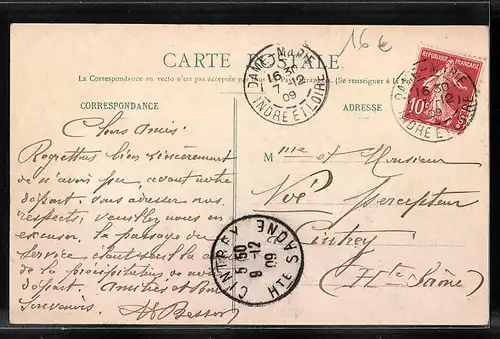 16€
CARTE POSTALE.
La Correspondance au recto n'est pas acceptée par tous les pays Étrangers. (Se renseigner à la Poste)
CORRESPONDANCE
ADRESSE
DAME-MARIE
16 30
7-12
09
INDRE ET LOIRE
RÉPUBLIQUE FRANÇAISE
10c
POSTES
DAME-MARIE
16 30
7-12
09
INDRE ET LOIRE
Chers Amis
Regrettons bien sincèrement
de n'avoir pu, avant notre
départ, vous adresser nos
respects, veuillez nous en
excuser, le passage du
service étant
de la précipitation de notre
départ. Amitiés et Bons
Souvenirs. Besson
Mme et Monsieur
Percepteur
Cintrey
Hte Saône
CINTREY
5 50
9-12
09
HTE SAONE